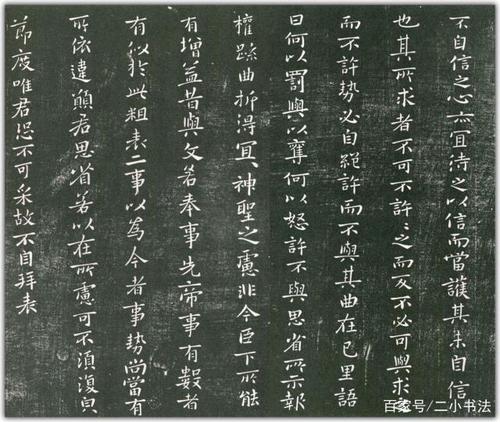 不自信之心亦宜待之以信而當護其未自信
也其所求者不可不許〻之而反不必可與求之
而不許勢必自絕許而不與其曲在己里語
曰何以罰與以奪何以怒許不與思省所示報
權踈曲折得宜神聖之慮非今臣下所能
有增益昔與文若奉事先帝事有數者
有似於此粗表二事以為今者事勢尚當有
所依違願君思省若以在所慮可不須復白
節度唯君恐不可采故不自拜表
百家号/二小书法